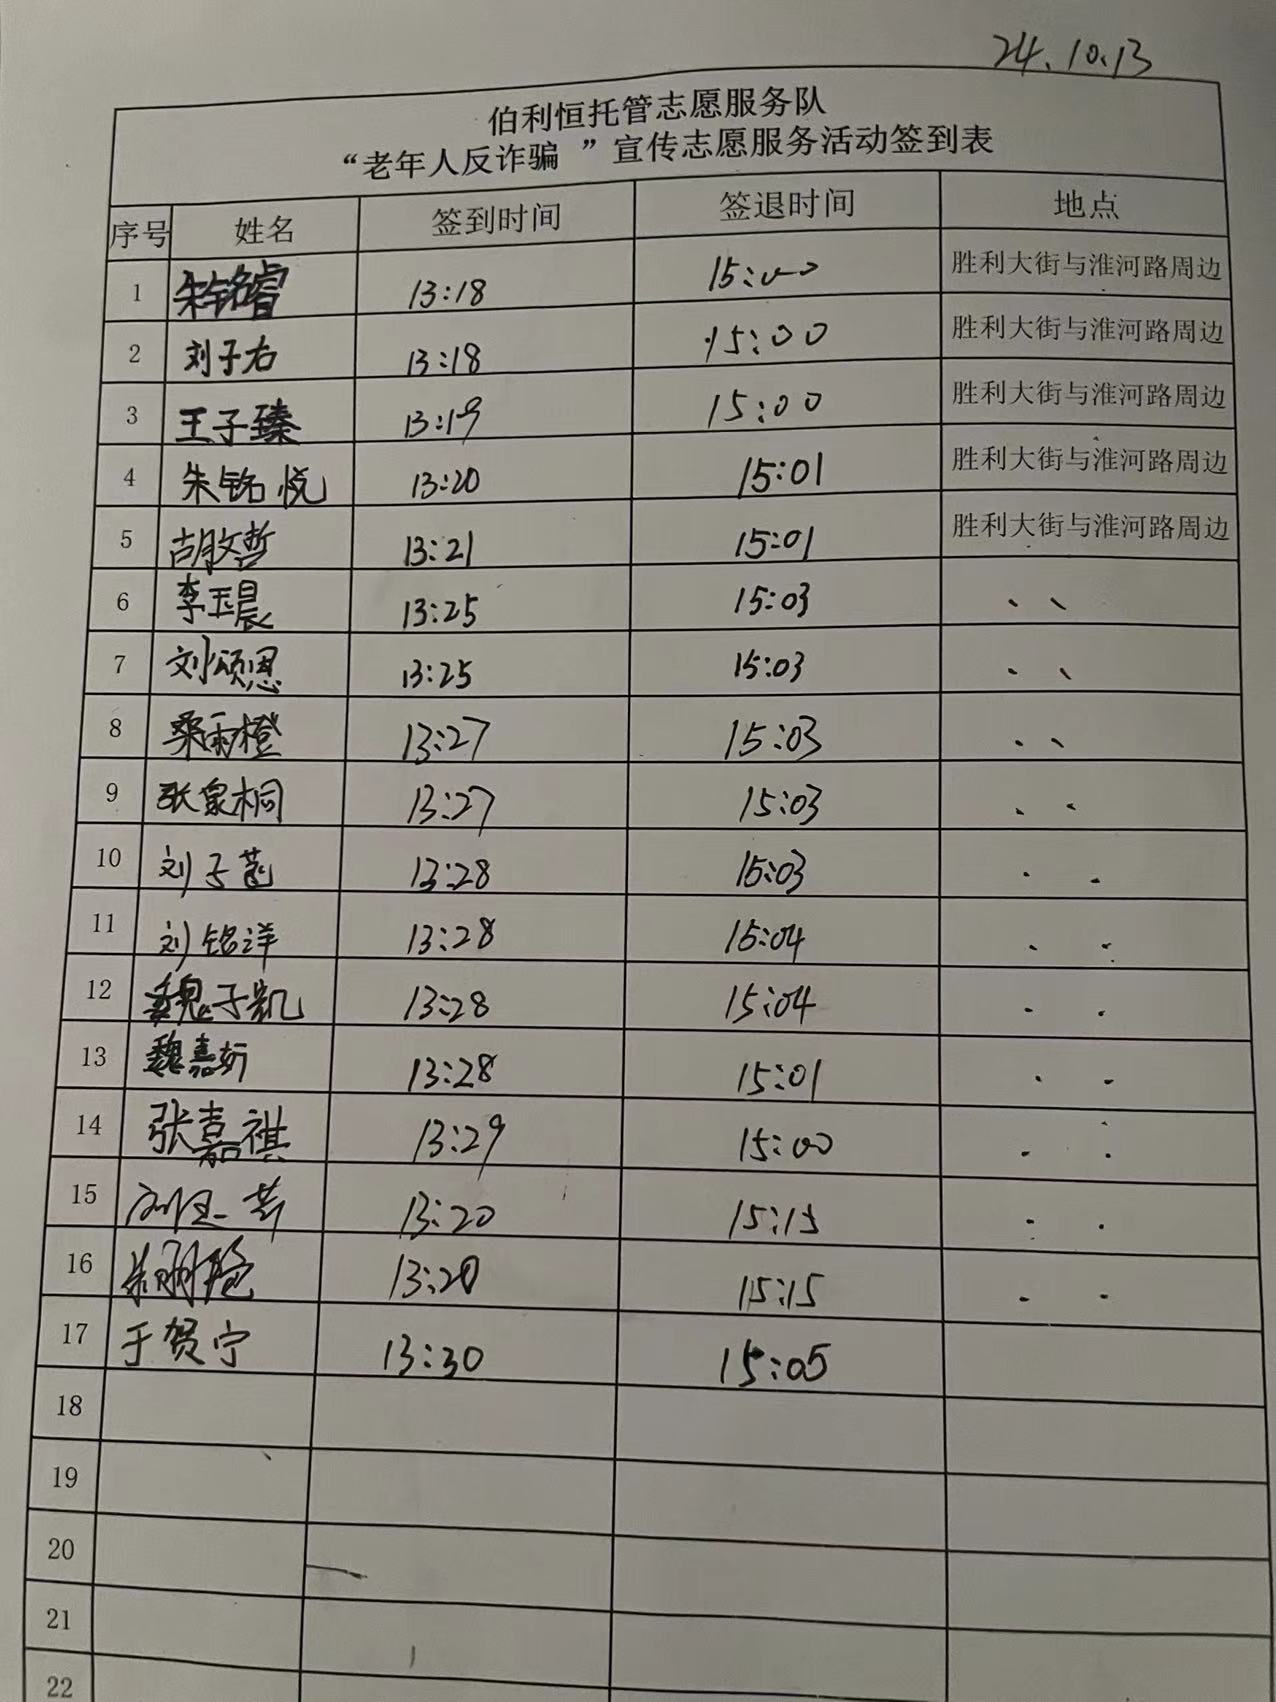 24.10.13
伯利恒托管志愿服务队
“老年人反诈骗 ”宣传志愿服务活动签到表
序号 姓名 签到时间 签退时间 地点
1 朱铭睿 13:18 15:00 胜利大街与淮河路周边
2 刘子右 13:18 15:00 胜利大街与淮河路周边
3 王子臻 13:19 15:00 胜利大街与淮河路周边
4 朱铭悦 13:20 15:01 胜利大街与淮河路周边
5 胡文哲 13:21 15:01 胜利大街与淮河路周边
6 李玉晨 13:25 15:03 、、
7 刘颂恩 13:25 15:03 、、
8 桑雨橙 13:27 15:03 、、
9 张泉桐 13:27 15:03 、、
10 刘子菡 13:28 15:03 、、
11 刘铭洋 13:28 15:04 、、
12 魏子凯 13:28 15:04 、、
13 魏嘉妡 13:28 15:01 、、
14 张嘉祺 13:29 15:00 、、
15 13:20 15:15 、、
16 朱丽艳 13:20 15:15 、、
17 于贺宁 13:30 15:05
18
19
20
21
22